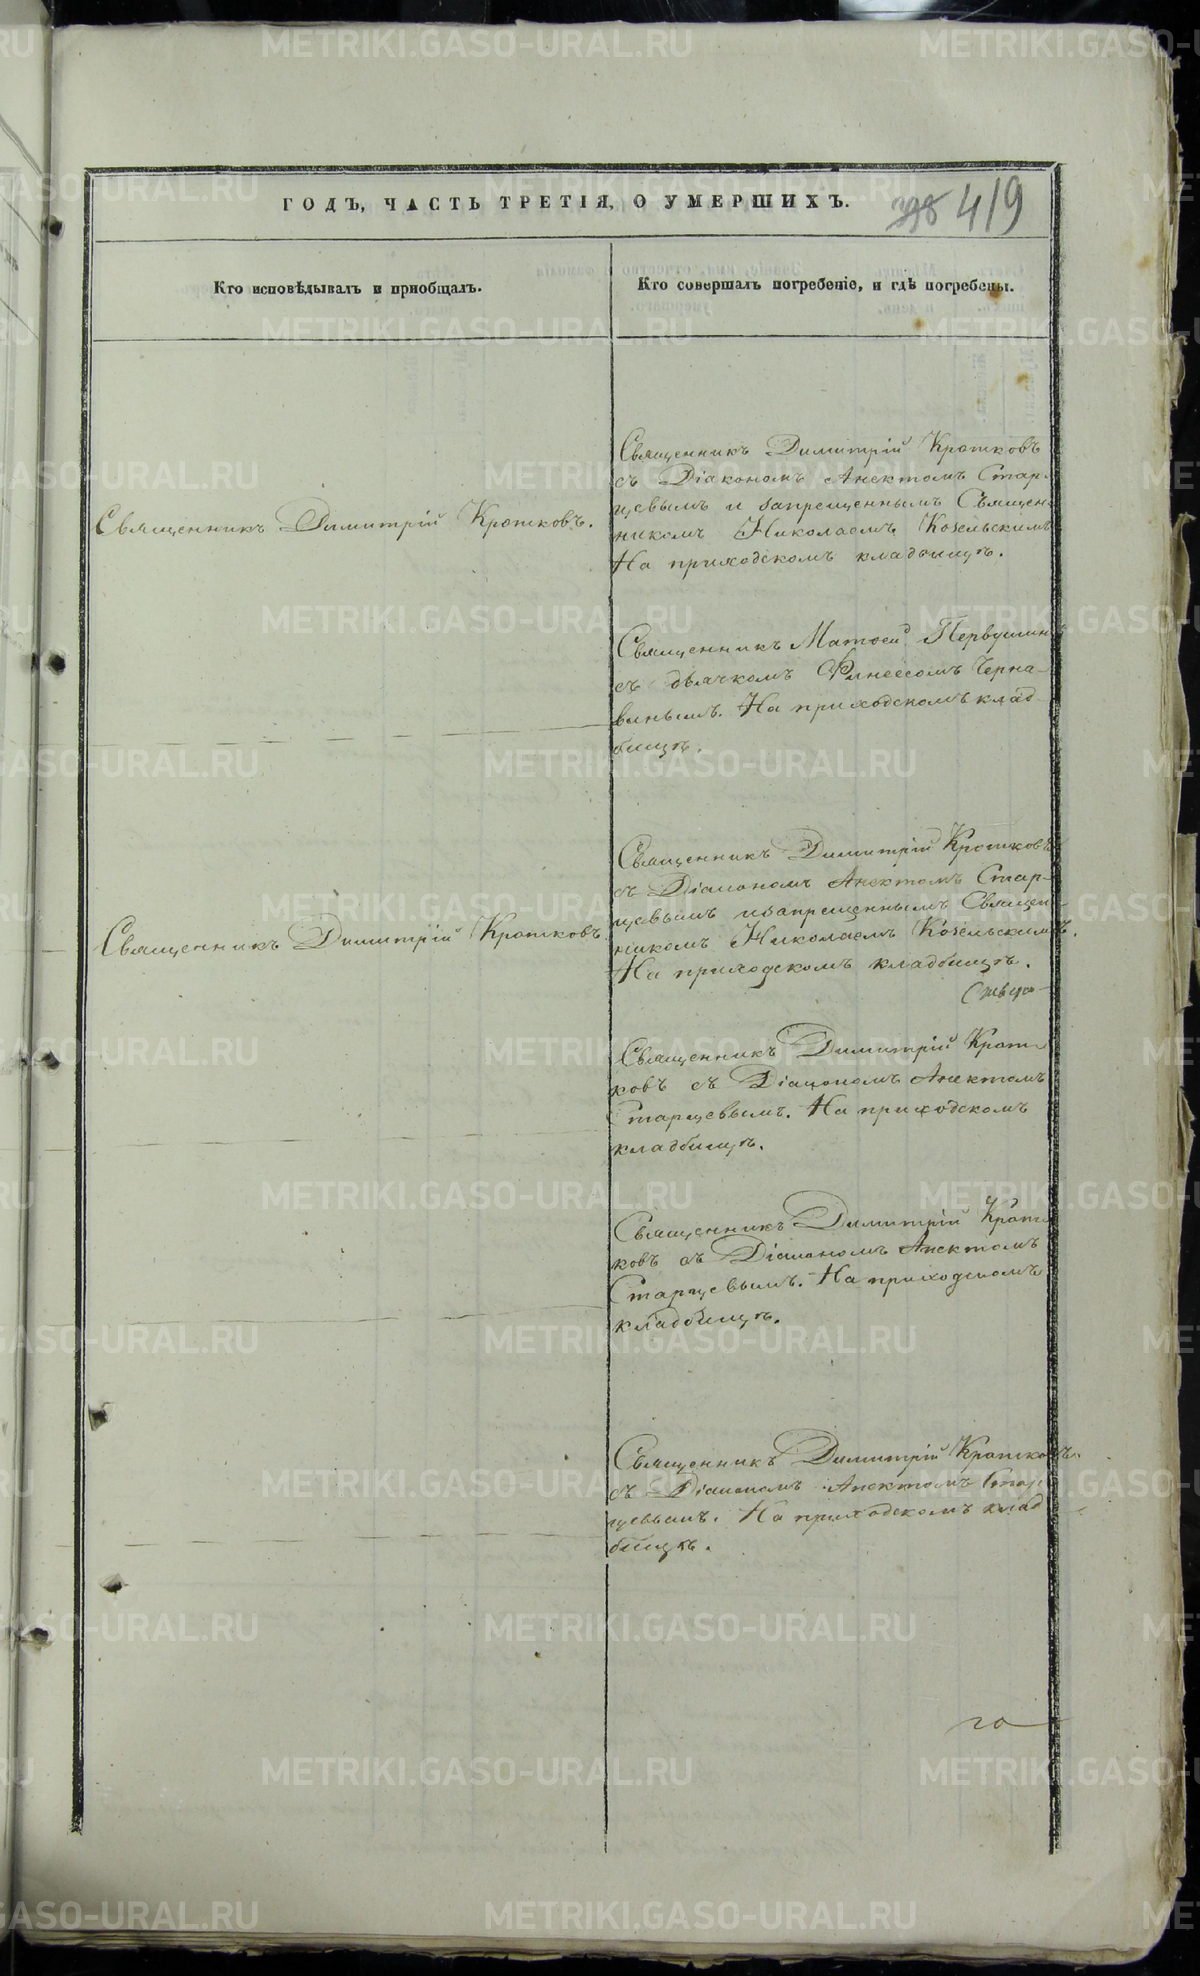 ГОДЪ, ЧАСТЬ ТРЕТІЯ, О УМЕРШИХЪ.
419
Кто исповѣдывалъ и приобщалъ.
Кто совершалъ погребеніе, и гдѣ погребены.
Священникъ Димитрій Кротковъ.
Священникъ Димитрій Кротковъ
съ Діакономъ Анектомъ Стар-
цевымъ и запрещеннымъ Священ-
никомъ Николаемъ Козельскимъ
На приходскомъ кладбищѣ.
Священникъ Матѳей Первушин
съ дьячкомъ Финеесомъ Черна-
винымъ. На приходскомъ клад-
бищѣ.
Священникъ Димитрій Кротковъ
Священникъ Димитрій Кротковъ
съ Діакономъ Анектомъ Стар-
цевымъ и запрещеннымъ Священ-
никомъ Николаемъ Козельскимъ.
На приходскомъ кладбищѣ.
Священникъ Димитрій Крот-
ковъ съ Діакономъ Анектомъ
Старцевымъ. На приходскомъ
кладбищѣ.
Священникъ Димитрій Крот-
ковъ съ Діакономъ Анектомъ
Старцевымъ. На приходскомъ
кладбищѣ.
Священникъ Димитрій Кротковъ
съ Діакономъ Анектомъ Стар-
цевымъ. На приходскомъ клад
бищѣ.
го
METRIKI.GASO-URAL.RU